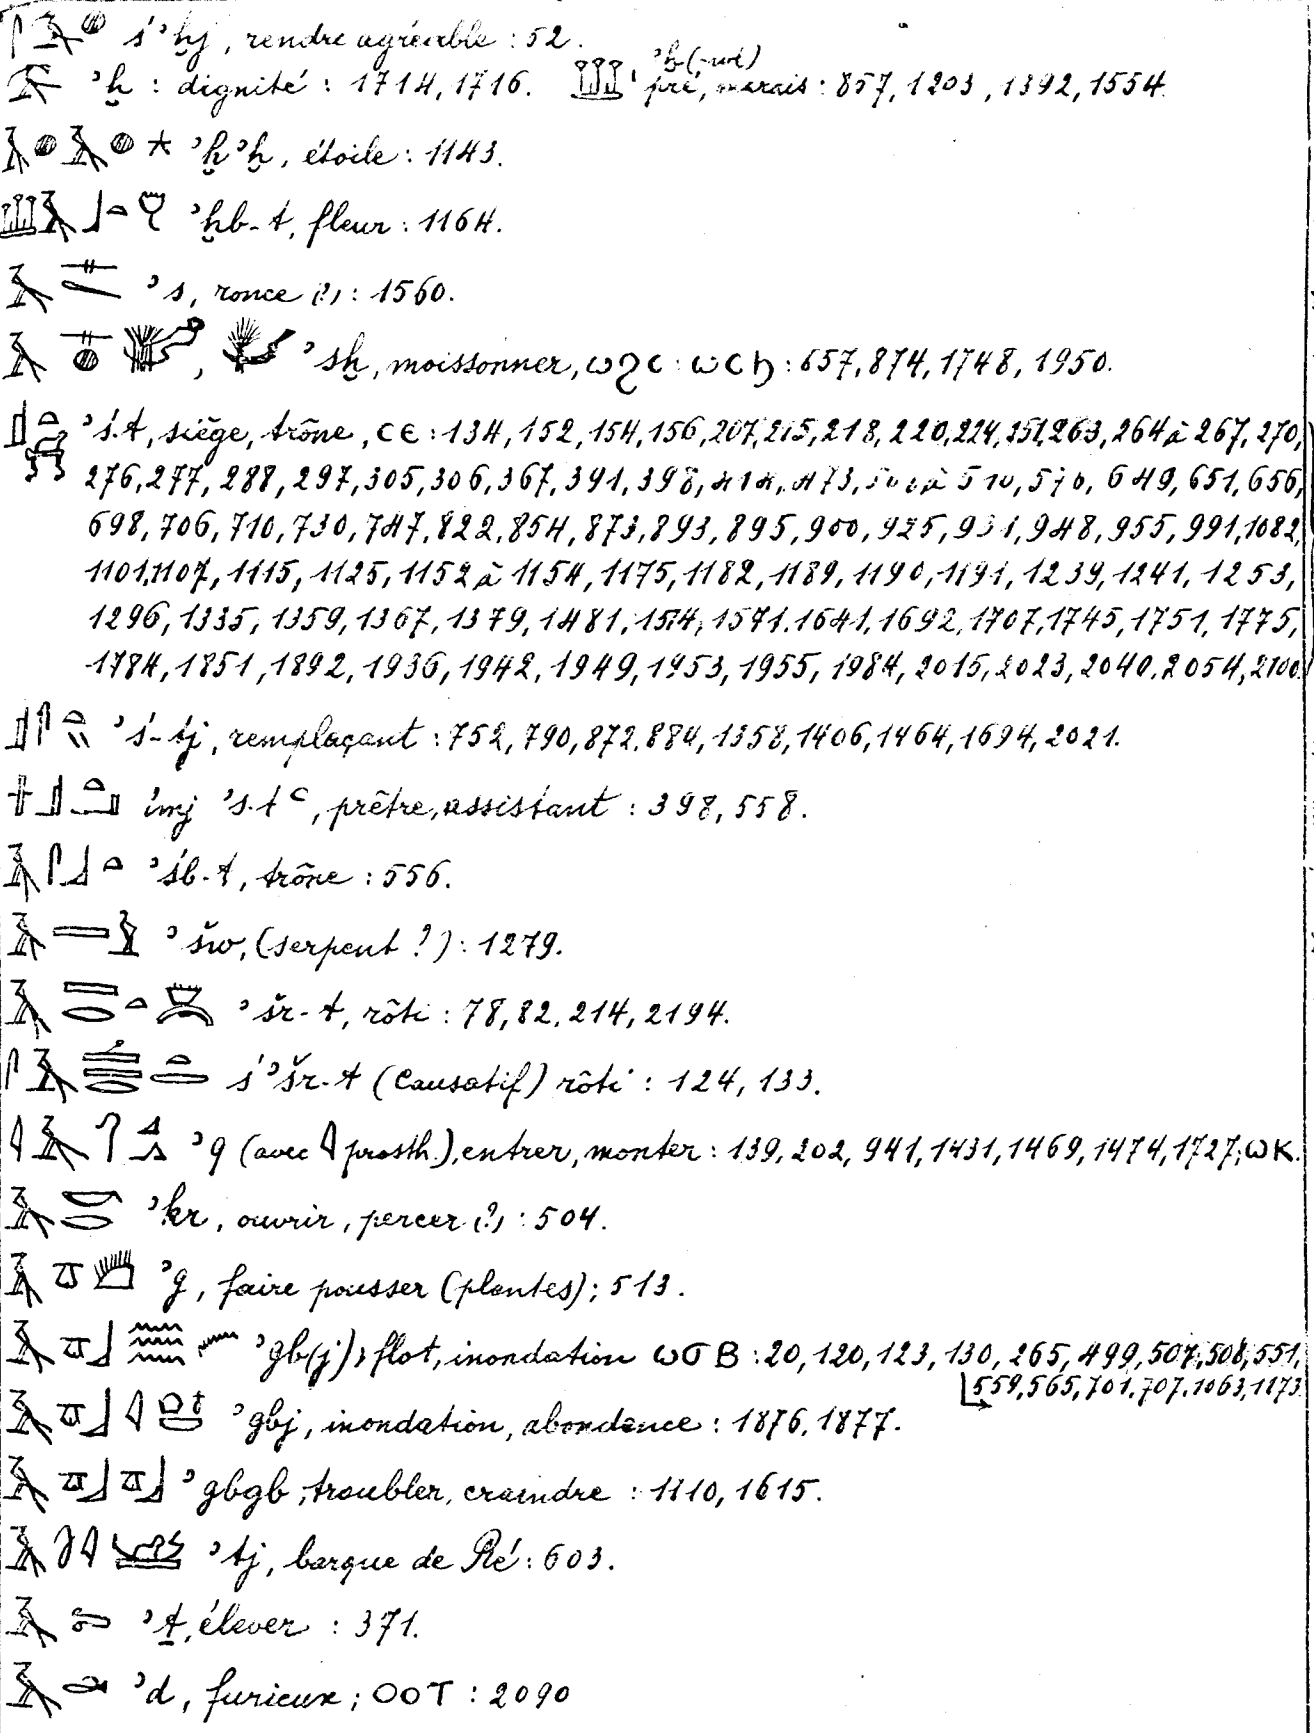 ś ꜣ ẖj, rendre agréable : 52.
ꜣẖ : dignité : 1714, 1716. ꜣẖ(-wt) pré, marais : 857, 1203, 1392, 1554.
ꜣẖꜣẖ, étoile : 1143.
ꜣẖb-t, fleur : 1164.
ꜣs, ronce (?) : 1560.
ꜣsẖ, moissonner, ⲱϩⲥ : ⲱⲥϧ : 657, 874, 1748, 1950.
ꜣś.t, siège, trône, ⲥⲉ : 134, 152, 154, 156, 207, 215, 218, 220, 224, 251, 263, 264 à 267, 270,
276, 277, 288, 297, 305, 306, 367, 391, 398, 473, 510, 649, 651, 656,
698, 706, 710, 730, 747, 822, 854, 873, 893, 895, 900, 925, 931, 948, 955, 991, 1082,
1101, 1107, 1115, 1125, 1152 à 1154, 1175, 1182, 1189, 1190, 1191, 1239, 1241, 1253,
1296, 1335, 1359, 1367, 1379, 1481, 1514, 1571, 1641, 1692, 1707, 1745, 1751, 1775,
1784, 1851, 1892, 1936, 1942, 1949, 1953, 1955, 1984, 2015, 2023, 2040, 2054, 2100.
ꜣś-tj, remplaçant : 752, 790, 872, 884, 1358, 1406, 1464, 1694, 2021.
imj ꜣs.t ꜥ, prêtre, assistant : 398, 558.
ꜣśb-t, trône : 556.
ꜣšw, (serpent ?) : 1279.
ꜣšr-t, rôti : 78, 82, 214, 2194.
śꜣšr-t (causatif) rôti : 124, 133.
ꜣq (avec 𓇋 prosth.), entrer, monter : 139, 202, 941, 1431, 1469, 1474, 1727; ⲱⲕ.
ꜣkr, ouvrir, percer (?) : 504.
ꜣg, faire pousser (plantes) ; 513.
ꜣgb(j), flot, inondation ⲱϭⲃ : 20, 120, 123, 130, 265, 499, 507, 508, 551,
559, 565, 701, 707, 1063, 1173
ꜣgbj, inondation, abondance : 1876, 1877.
ꜣgbgb, troubler, craindre : 1110, 1615.
ꜣtj, barque de Ré : 603.
ꜣṯ, élever : 371.
ꜣd, furieux ; ⲟⲟⲧ : 2090